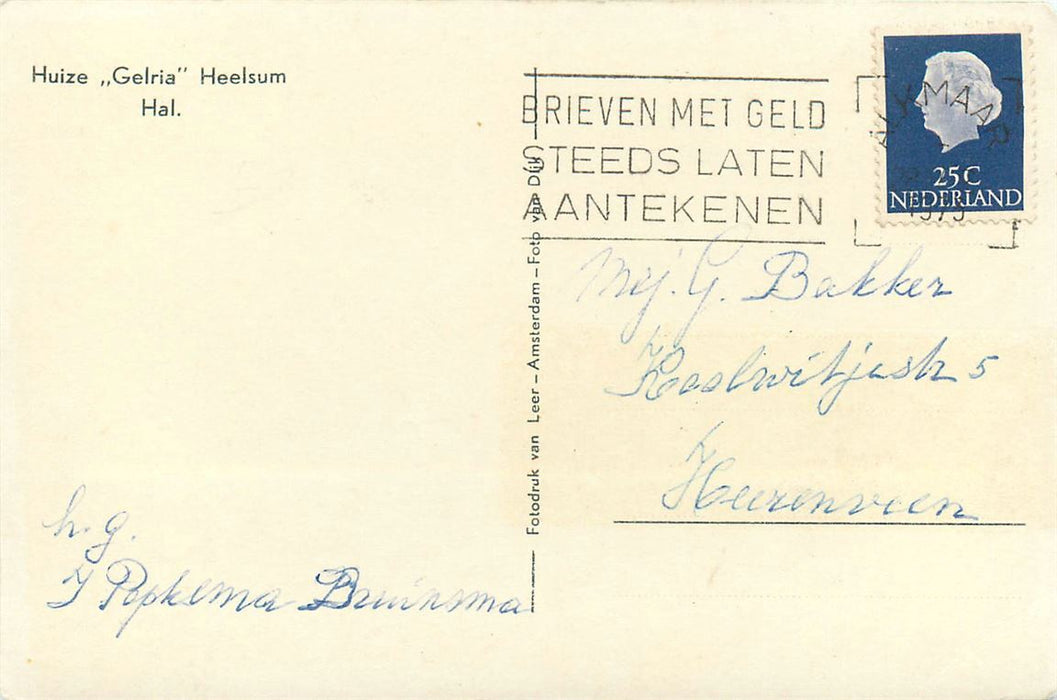 Huize „Gelria” Heelsum
Hal.
BRIEVEN MET GELD
STEEDS LATEN
AANTEKENEN
ALKMAAR
1973
25C
NEDERLAND
Fotodruk van Leer – Amsterdam – Foto van Dijk
Mej. G. Bakker
Koolwitjestr 5
Heerenveen
h.g.
J Popkema Bruinsma